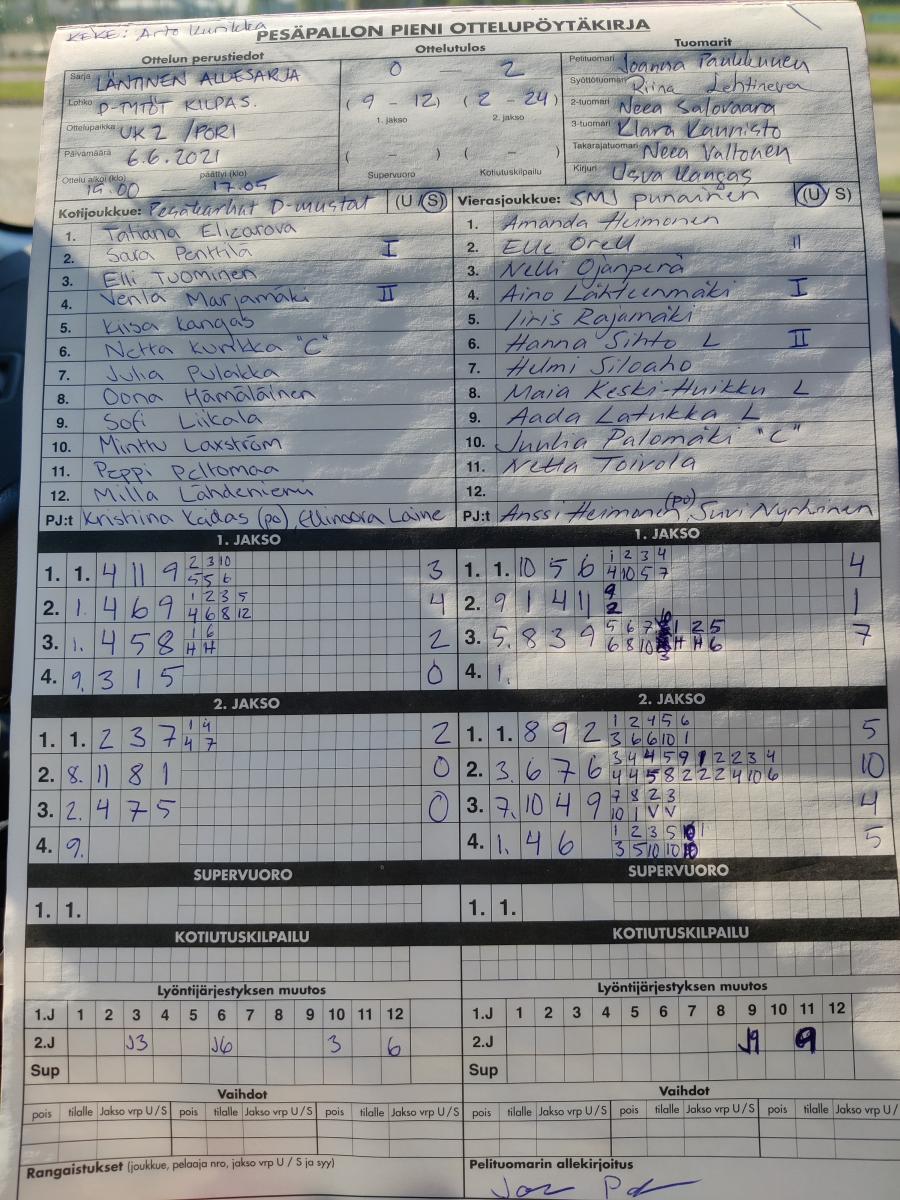 KEKE: Arto Kurikka
PESÄPALLON PIENI OTTELUPÖYTÄKIRJA
Ottelun perustiedot
Sarja LÄNTINEN ALUESARJA
Lohko D-TYTÖT KILPAS.
Ottelupaikka UK2 /PORI
Päivämäärä 6.6.2021
Ottelu alkoi (klo) 15.00 — päättyi (klo) 17.05
Ottelutulos
0 — 2
(9 - 12) (2 - 24)
1. jakso 2. jakso
( - ) ( - )
Supervuoro Kotiutuskilpailu
Tuomarit
Pelituomari Joanna Paukkunen
Syöttötuomari Riina Lehtineva
2-tuomari Neea Salovaara
3-tuomari Klara Kannisto
Takarajatuomari Neea Valtonen
Kirjuri Usva Kangas
Kotijoukkue: Pesäkarhut D-mustat (U S)
1. Tatiana Elizarova
2. Sara Penttilä I
3. Elli Tuominen
4. Venla Marjamäki II
5. Kiisa Kangas
6. Netta Kurikka "C"
7. Julia Pulakka
8. Oona Hämäläinen
9. Sofi Liikala
10. Minttu Laxström
11. Peppi Peltomaa
12. Milla Lähdeniemi
PJ:t Krishina Kaidas (po), Ellinoora Laine
Vierasjoukkue: SMJ punainen (U S)
1. Amanda Heimonen
2. Elle Orell II
3. Nelli Ojanperä
4. Aino Lähteenmäki I
5. Iiris Rajamäki
6. Hanna Sihto L II
7. Helmi Siloaho
8. Maia Keski-Huikku L
9. Aada Latukka L
10. Juulia Palomäki "C"
11. Netta Toivola
12.
PJ:t Anssi Heimonen (po), Suvi Nyrhinen
1. JAKSO
1. 1. 4 11 9 2 3 10 3
5 5 6
2. 1. 4 6 9 1 2 3 5 4
4 6 8 12
3. 1. 4 5 8 1 6 2
H H
4. 9. 3 1 5 0
1. JAKSO
1. 1. 10 5 6 1 2 3 4 4
4 10 5 7
2. 9 1 4 11 9 1
2
3. 5. 8 3 9 5 6 7 1 2 5 7
6 8 10 3 H H 6
4. 1.
2. JAKSO
1. 1. 2 3 7 1 4 2
4 7
2. 8. 11 8 1 0
3. 2. 4 7 5 0
4. 9.
2. JAKSO
1. 1. 8 9 2 1 2 4 5 6 5
3 6 6 10 1
2. 3. 6 7 6 3 4 4 5 9 1 2 2 3 4 10
4 4 5 8 2 2 2 4 10 6
3. 7. 10 4 9 7 8 2 3 4
10 1 V V
4. 1. 4 6 1 2 3 5 1 5
3 5 10 10
SUPERVUORO
1. 1.
SUPERVUORO
1. 1.
KOTIUTUSKILPAILU
KOTIUTUSKILPAILU
Lyöntijärjestyksen muutos
1.J 1 2 3 4 5 6 7 8 9 10 11 12
2.J J3 J6 3 6
Sup
Lyöntijärjestyksen muutos
1.J 1 2 3 4 5 6 7 8 9 10 11 12
2.J J9 9
Sup
Vaihdot
pois tilalle Jakso vrp U/S pois tilalle Jakso vrp U/S pois tilalle Jakso vrp U/S
Vaihdot
pois tilalle Jakso vrp U/S pois tilalle Jakso vrp U/S pois tilalle Jakso vrp U/
Rangaistukset (joukkue, pelaaja nro, jakso vrp U / S ja syy)
Pelituomarin allekirjoitus